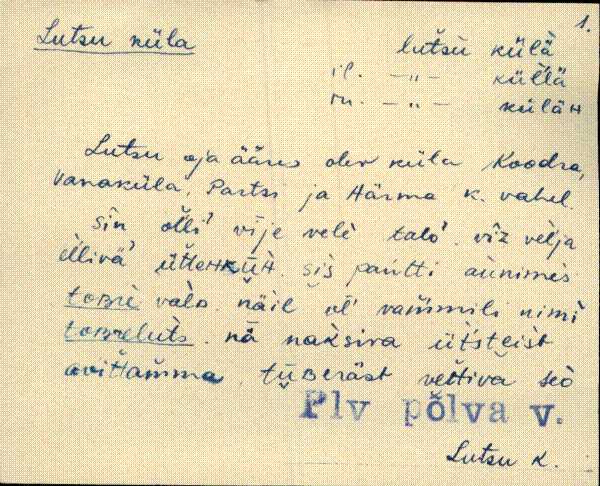 1.
Lutsu küla
lut̆šu külä
il. —„— küĺĺä
in. —„— külä̀н
Lutsu oja ääres olev küla Koodra,
Vanaküla, Partsi ja Härma k. vahel.
sin oĺĺi vīje velè talo. vīz velja
ĕllivä üttенкüн. sīs pantti aùnimes
toвrè valo. näil oĺ vammili nimi
toвrèluts. nǟ naksiva üt́stĕist
avittamma. tüвeräst vettiva seo
Plv põlva v.
Lutsu k.